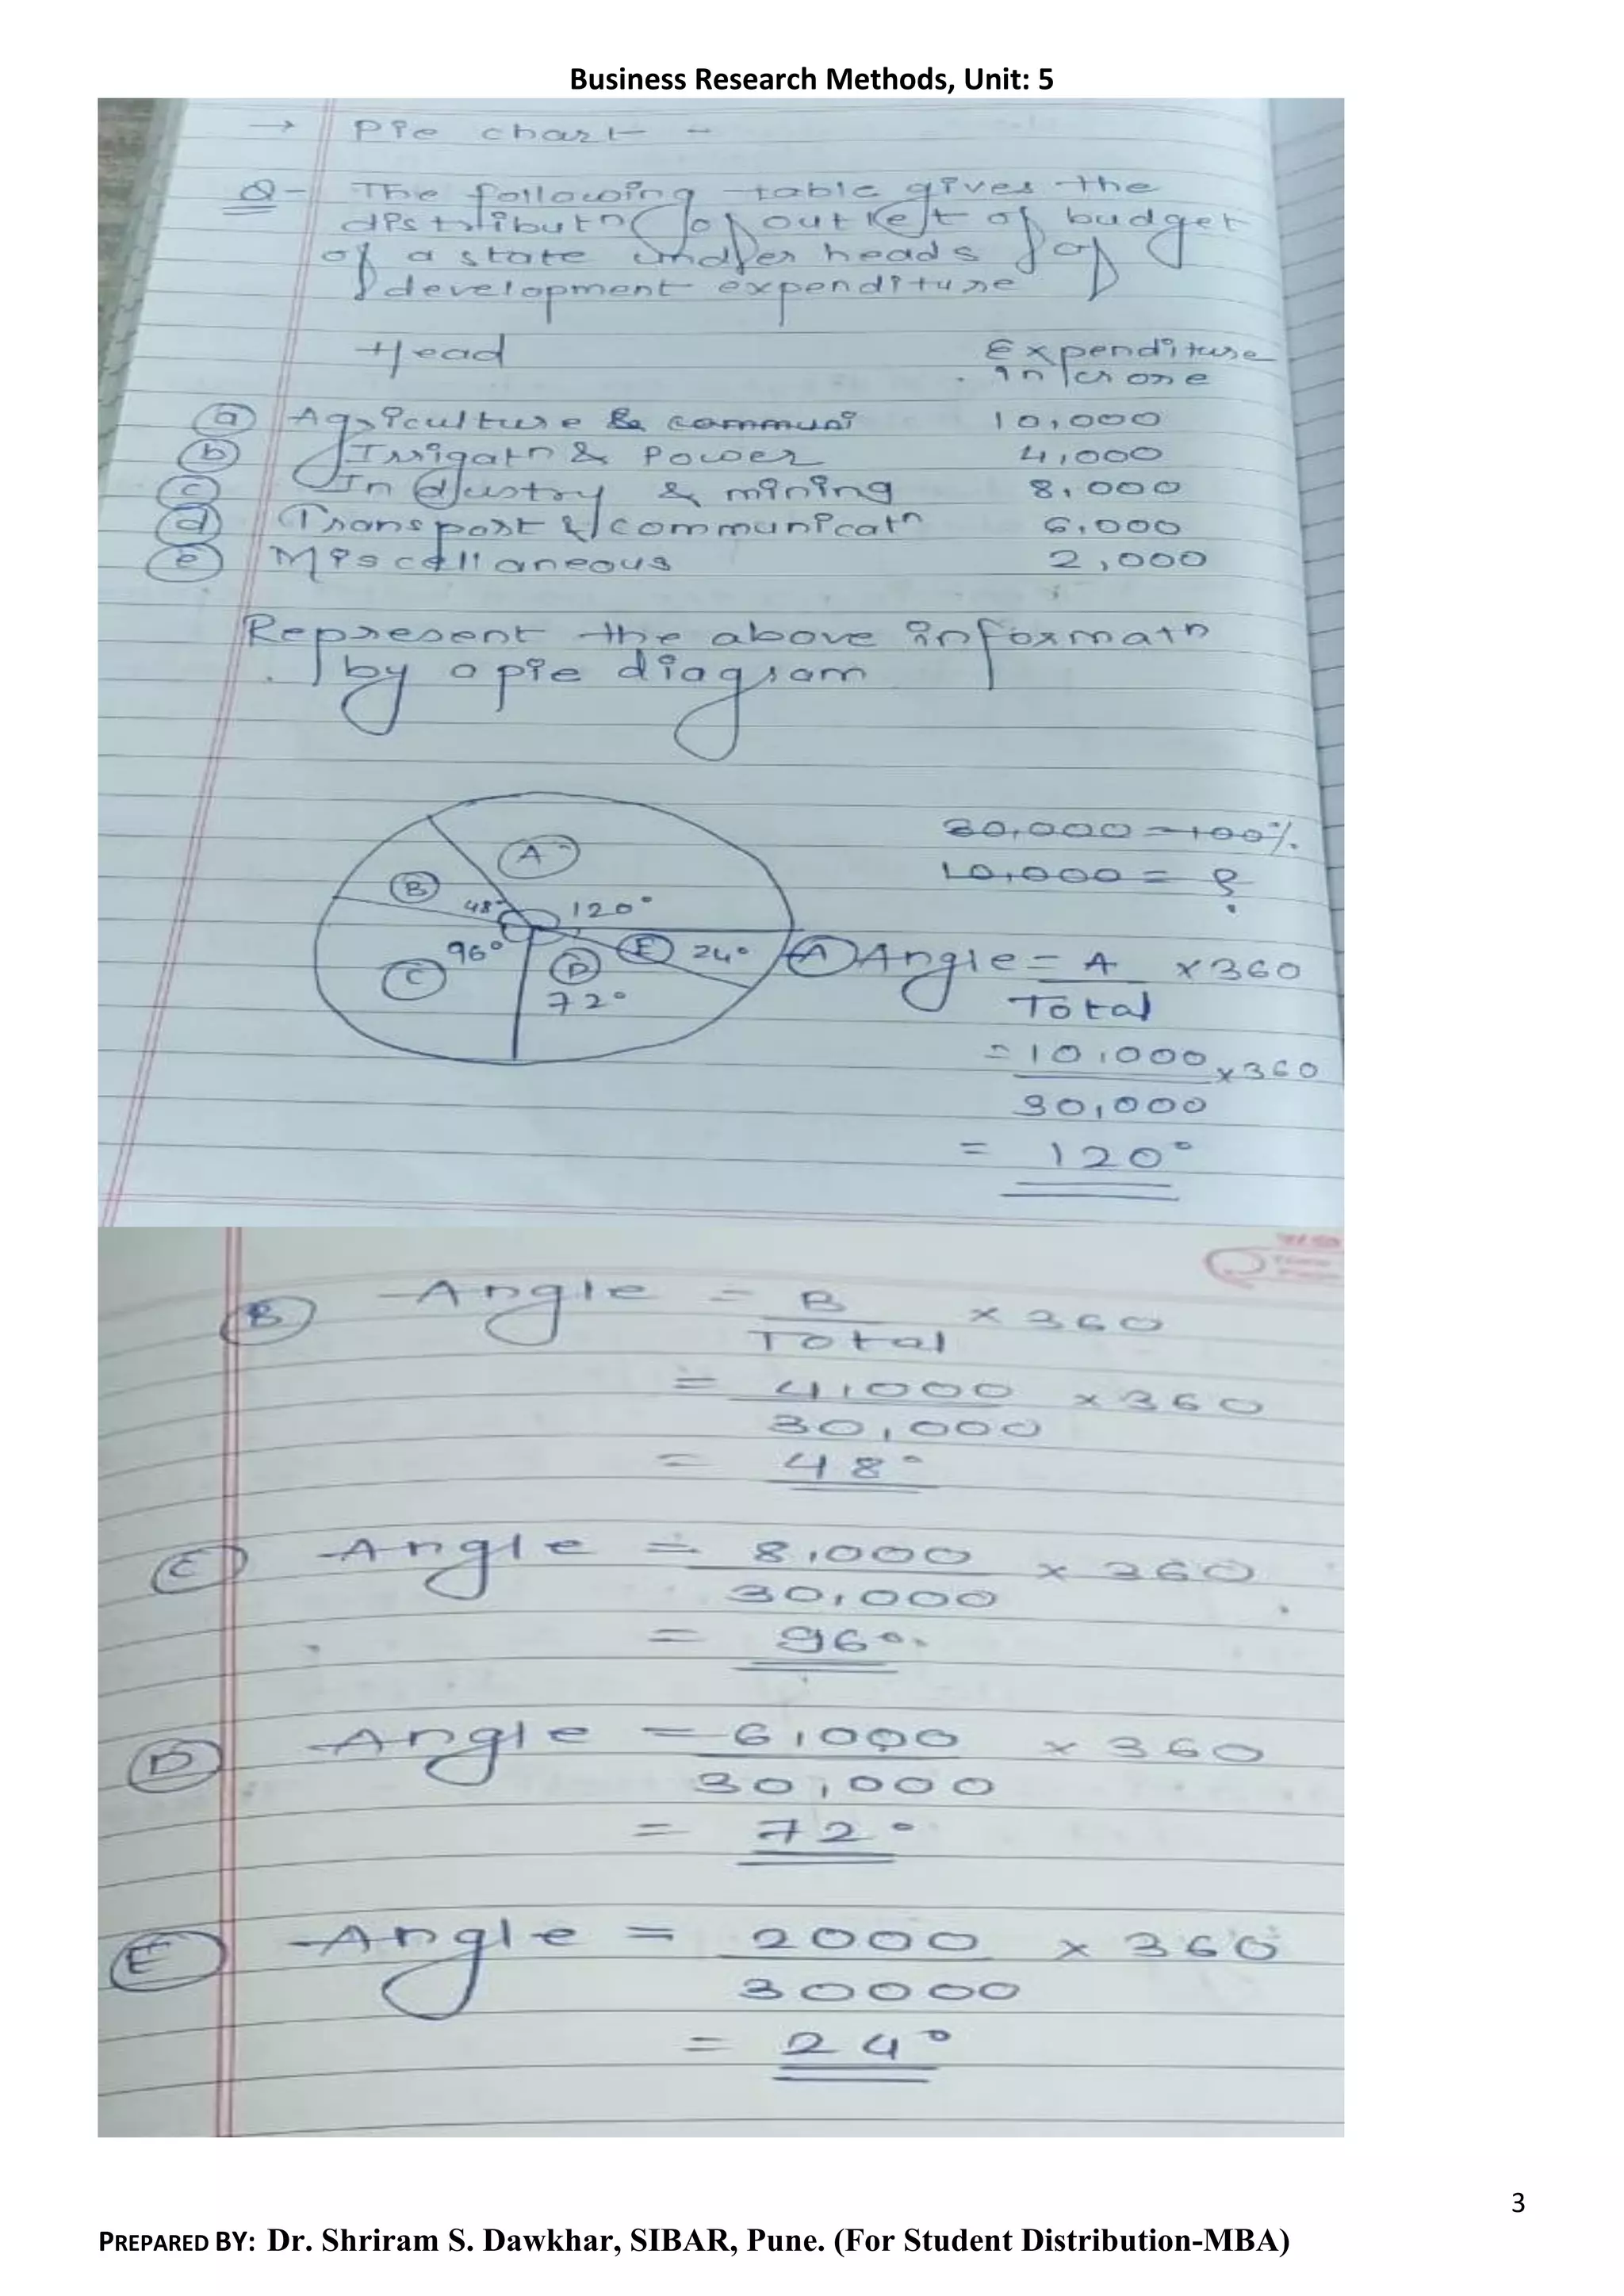 Business Research Methods, Unit: 5
→ Pie chart -
Q- The following table gives the
distributn of outlet of budget
of a state under heads of
development expenditure
Head Expenditure
in crore
(a) Agriculture & communi 10,000
(b) Irrigatn & Power 4,000
(c) Industry & mining 8,000
(d) Transport & communicatn 6,000
(e) Miscellaneous 2,000
Represent the above informatn
by a pie diagram
30,000 = 100%
10,000 = ?
A
B
48°
120°
96°
C
D
72°
E
24°
(A) Angle = A × 360
Total
= 10,000 × 360
30,000
= 120°
(B) Angle = B × 360
Total
= 4,000 × 360
30,000
= 48°
(C) Angle = 8,000 × 360
30,000
= 96°
(D) Angle = 6,000 × 360
30,000
= 72°
(E) Angle = 2000 × 360
30000
= 24°
3
PREPARED BY: Dr. Shriram S. Dawkhar, SIBAR, Pune. (For Student Distribution-MBA)